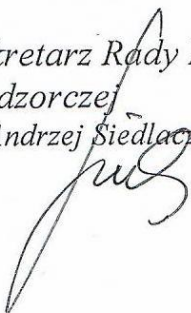 kretarz Rady
dzorczej
ndrzej Siedlac